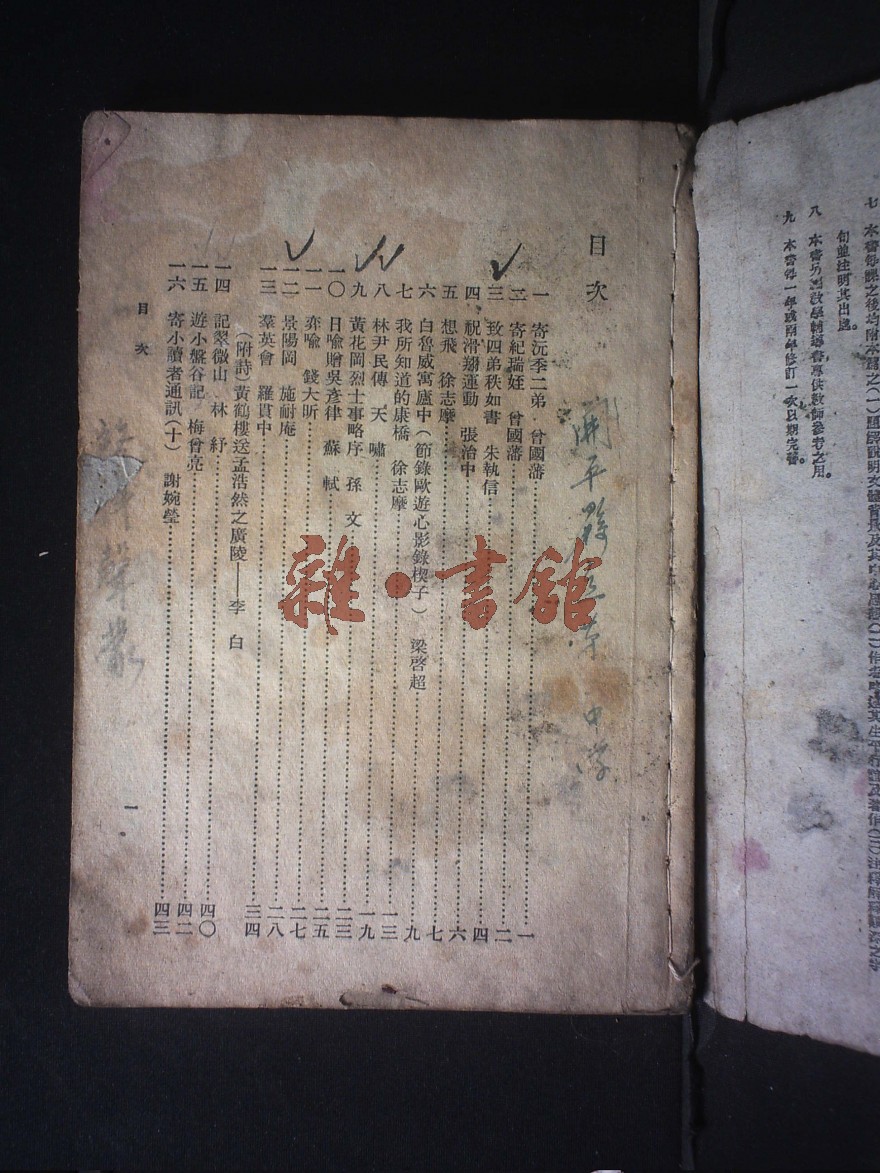 七 本書每課之後均附本篇之(一)題解說明文體
句並注明其出處。
八 本書另有教學輔導書專供教師參考之用。
九 本書每一年或兩年修訂一次以期完善。
目次
開平縣立 中学
一 寄沅季二弟 曾國藩 一
二 寄紀瑞姪 曾國藩 二
三 致四弟秩如書 朱執信 四
四 祝滑翔運動 張治中 六
五 想飛 徐志摩 七
六 白魯威寓廬中(節錄歐遊心影錄楔子) 梁啓超 九
七 我所知道的康橋 徐志摩 一三
八 林尹民傳 天嘯 一九
九 黃花岡烈士事略序 孫文 二三
一〇 日喻贈吳彥律 蘇軾 二五
一一 弈喻 錢大昕 二七
一二 景陽岡 施耐庵 二八
一三 羣英會 羅貫中 三四
(附詩)黃鶴樓送孟浩然之廣陵——李白
一四 記翠微山 林紓 四〇
一五 遊小盤谷記 梅曾亮 四二
一六 寄小讀者通訊(十) 謝婉瑩 四三
目次
一
雜·書館